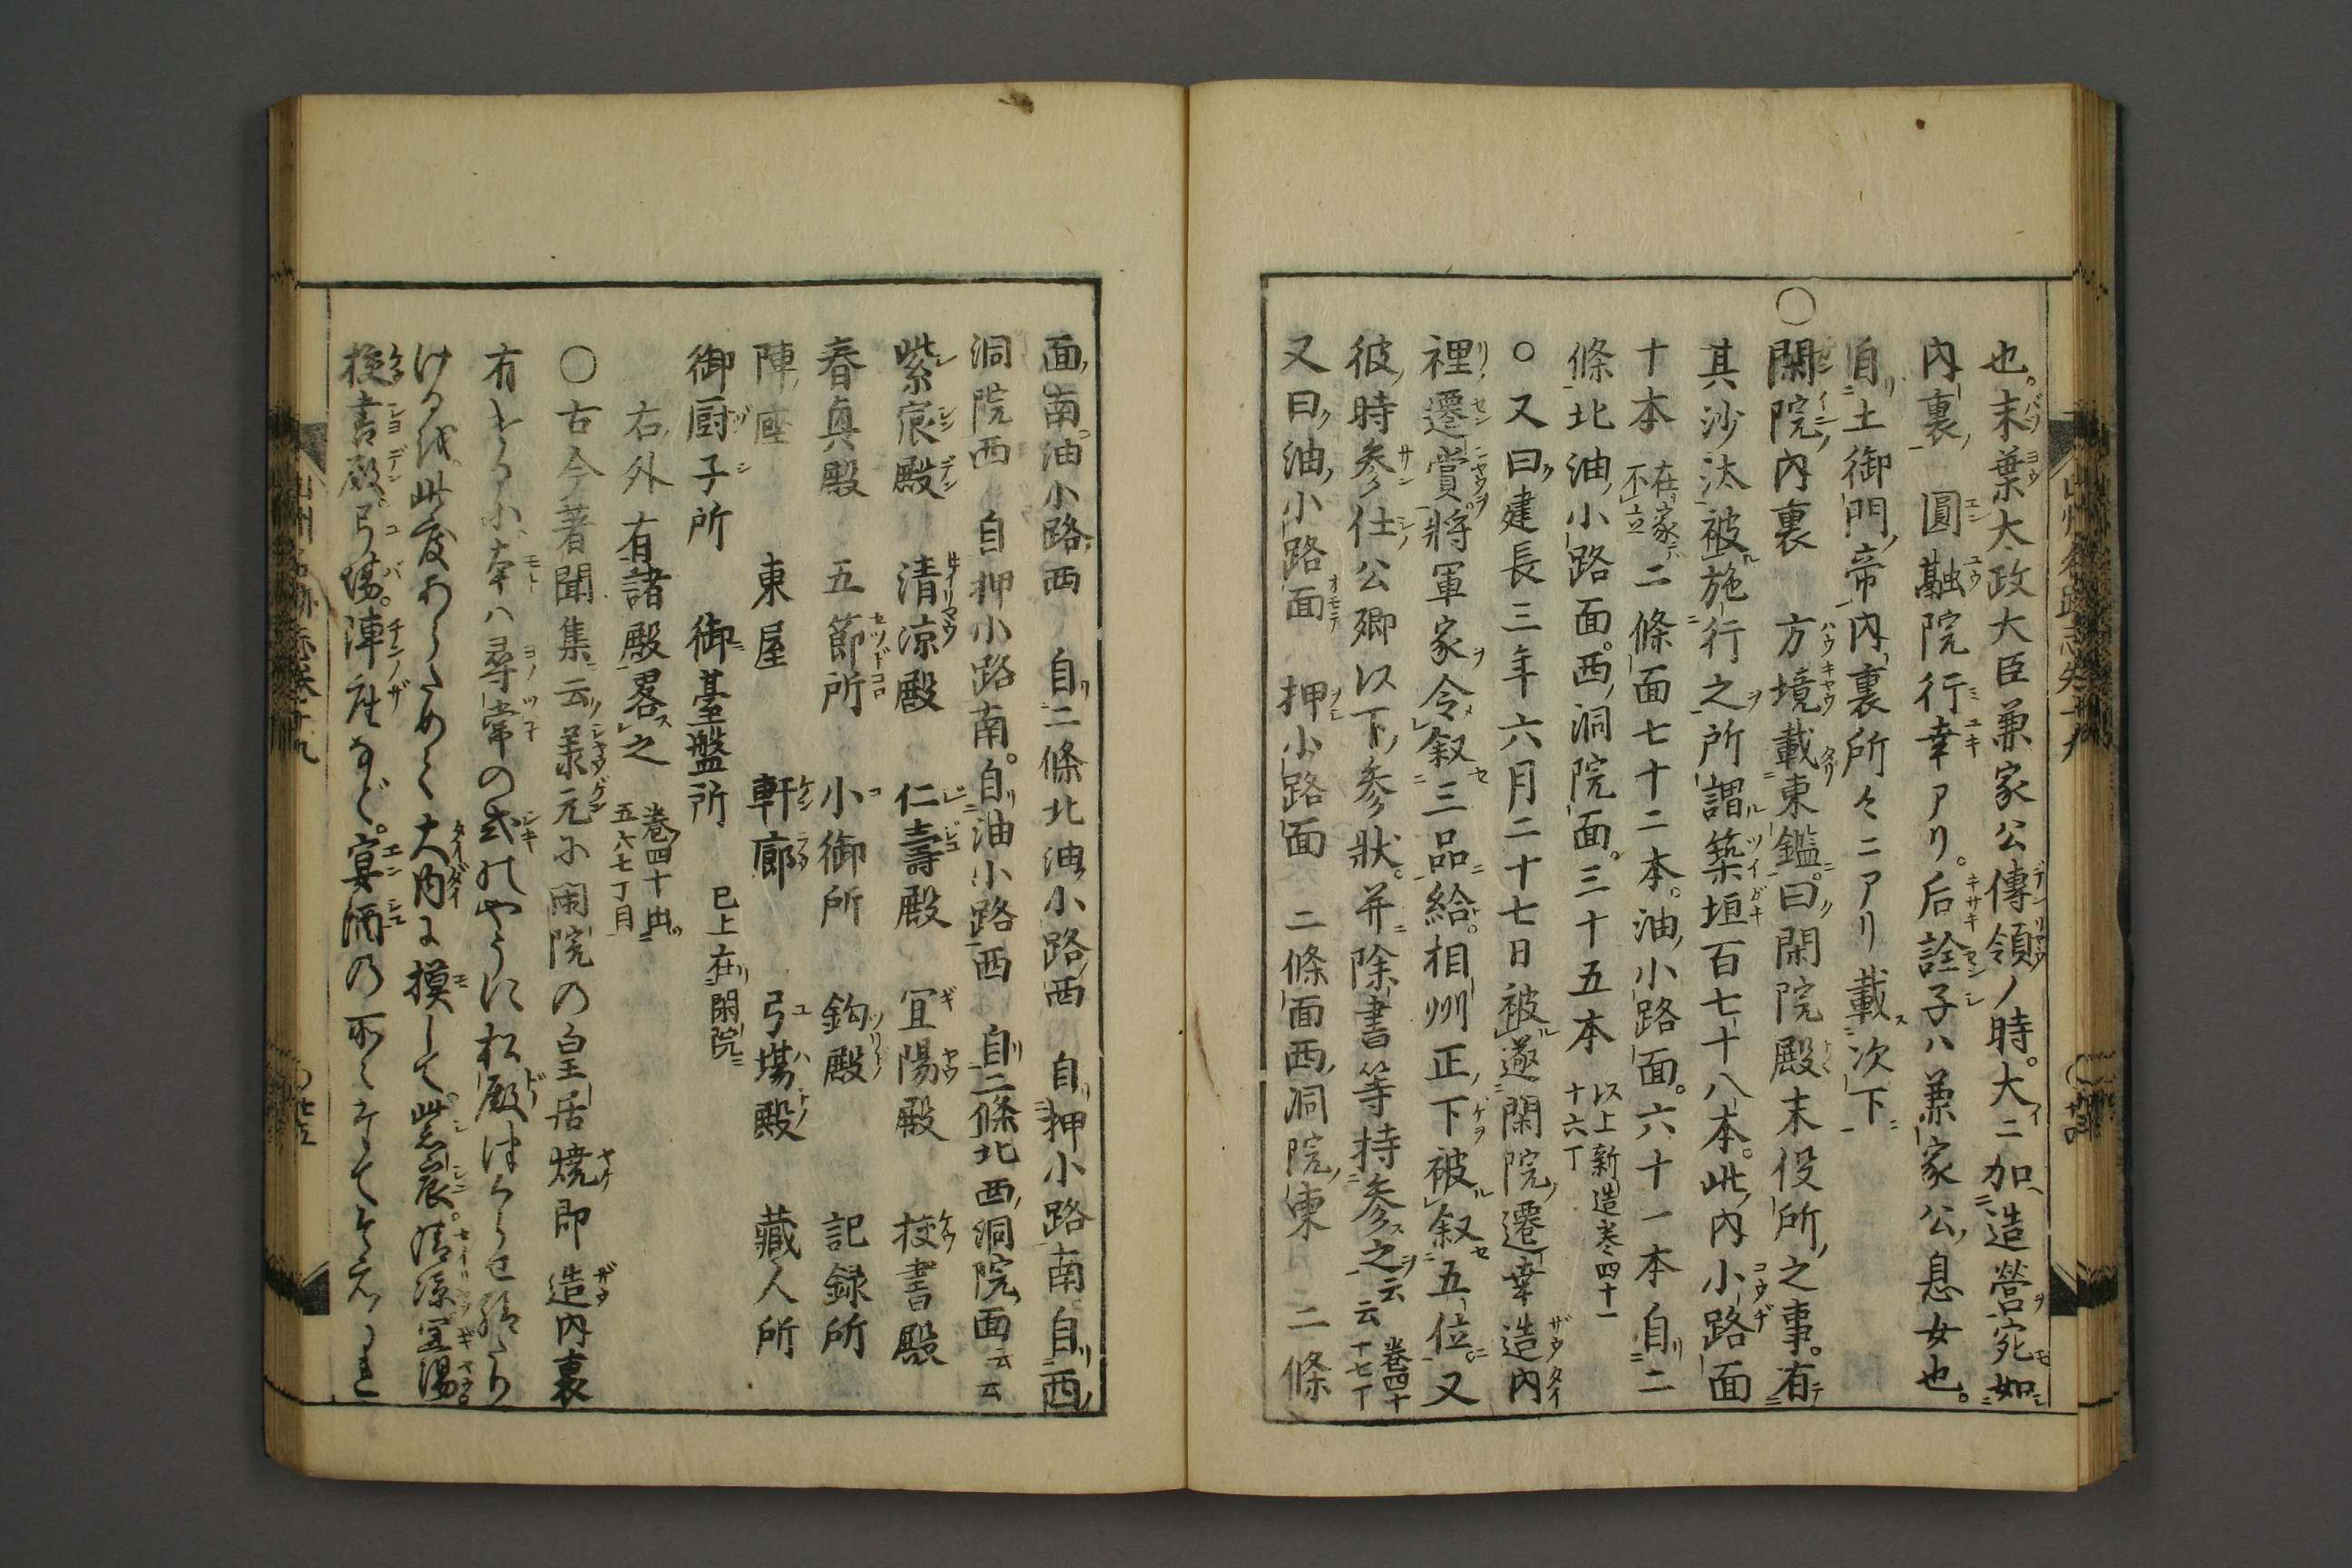 也。末葉大政大臣兼家公傳領ノ時。大ニ加造營宛如
內裏 圓融院行幸アリ。后詮子ハ兼家公息女也。
自土御門帝內裏所々ニアリ載次下
○閑院內裏 方境載東鑑。曰閑院殿末役所之事。有
其沙汰被施行之所謂築垣百七十八本。此內小路面
十本 在家不立 二條面七十二本。油小路面。六十一本自二
條北油小路面。西洞院面。三十五本 以上新造巻四十一十六丁
○又曰建長三年六月二十七日被遂閑院遷幸造內
裡遷賞。將軍家令叙三品給。相州正下被叙五位。又
彼時參仕公卿以下參狀。并除書等持參之云云 巻四十一十七丁
又曰油小路面 押小路面 二條面西洞院東 二條
面南。油小路西 自二條北油小路西 自押小路南自西
洞院西 自押小路南。自油小路西 自二條北西洞院面云云
紫宸殿 清涼殿 仁壽殿 宜陽殿 校書殿
春真殿 五節所 小御所 釣殿 記録所
陣座 東屋 軒廊 弓場殿 藏人所
御厨子所 御臺盤所 已上在閑院
右外有諸殿畧之 巻四十出五六七丁目
○古今著聞集云兼元に閑院の皇居燒即造內裏
有ける小本ハ尋常の式のやうに松殿はからせ給たり
けるを此度あらためて大內に摸して紫宸。清涼宜陽。
挍書殿弓場。陣座など。宴酒の所〻